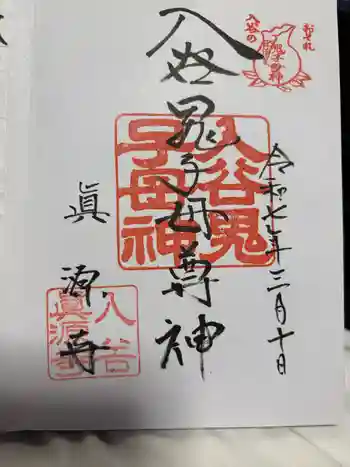 おそれ
入谷の
鬼子母神
令和七年三月十日
入谷鬼子母尊神
入谷鬼
子母神
眞源寺
入谷
眞源寺